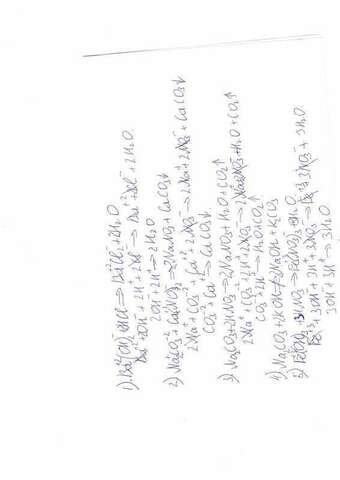 1) Ba⁺²(OH)₂⁻+2HCl → Ba⁺²Cl₂⁻+2H₂O
Ba⁺²+2OH⁻+2H⁺+2Cl⁻ → Ba⁺²+2Cl⁻+2H₂O
2OH⁻+2H⁺ → 2H₂O
2) Na₂CO₃+Ca(NO₃)₂ → 2NaNO₃+CaCO₃↓
2Na⁺+CO₃⁻²+Ca⁺²+2NO₃⁻ → 2Na⁺+2NO₃⁻+CaCO₃↓
CO₃⁻²+Ca⁺² → CaCO₃↓
3) Na₂CO₃+2HNO₃ → 2NaNO₃+H₂O+CO₂↑
2Na⁺+CO₃⁻²+2H⁺+2NO₃⁻ → 2Na⁺+2NO₃⁻+H₂O+CO₂↑
CO₃⁻²+2H⁺ → H₂O+CO₂↑
4) Na₂CO₃+2KOH ≠ 2NaOH+K₂CO₃
5) Fe(OH)₃+3HNO₃ → Fe(NO₃)₃+3H₂O
Fe⁺³+3OH⁻+3H⁺+3NO₃⁻ → Fe⁺³+3NO₃⁻+3H₂O
3OH⁻+3H⁺ → 3H₂O